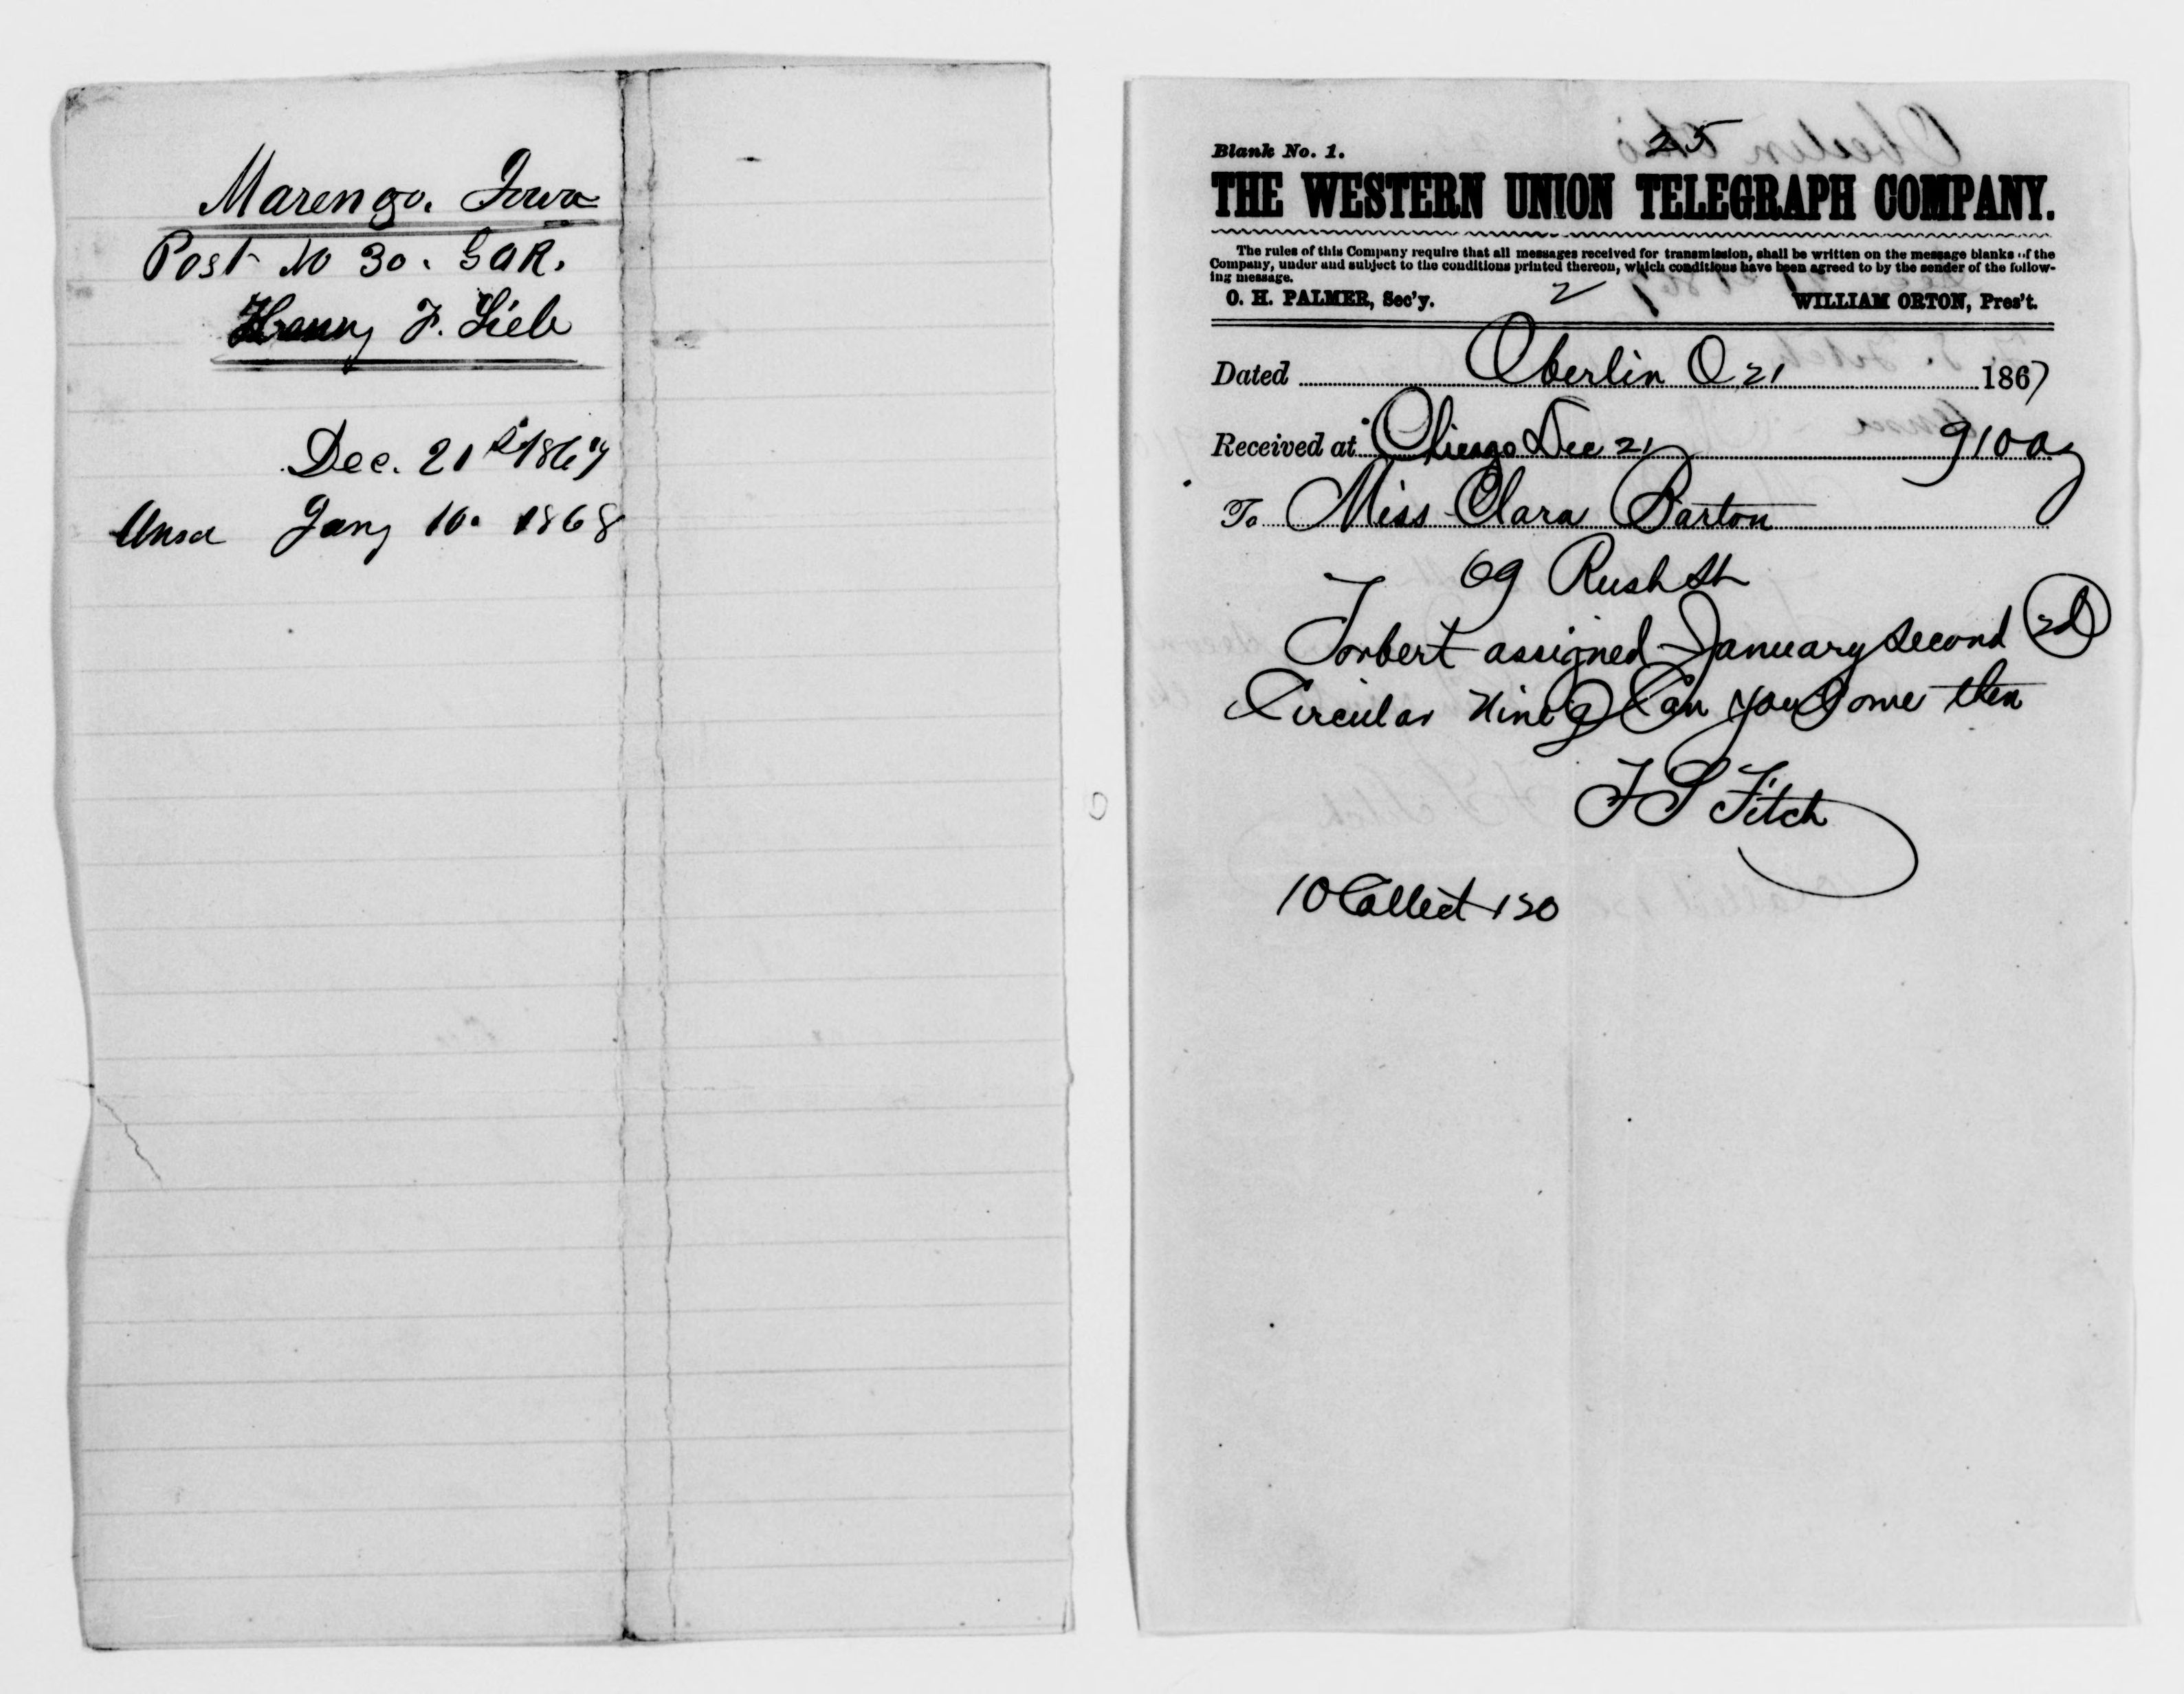 Marengo. Iowa
Post No 30. GAR.
Henry F. Lieb
Dec. 21st 1867
Ansd Jany 10. 1868
25
Blank No. 1.
THE WESTERN UNION TELEGRAPH COMPANY.
The rules of this Company require that all messages received for transmission, shall be written on the message blanks of the
Company, under and subject to the conditions printed thereon, which conditions have been agreed to by the sender of the follow-
ing message.
O. H. PALMER, Sec'y. WILLIAM ORTON, Pres't.
Dated Oberlin O 21 1867
Received at Chicago Dec 21 910 a
To Miss Clara Barton
69 Rush St
Torbert assigned January second 2d
Circular Nine 9 Can you Come then
F S Fitch
10 Collect 150